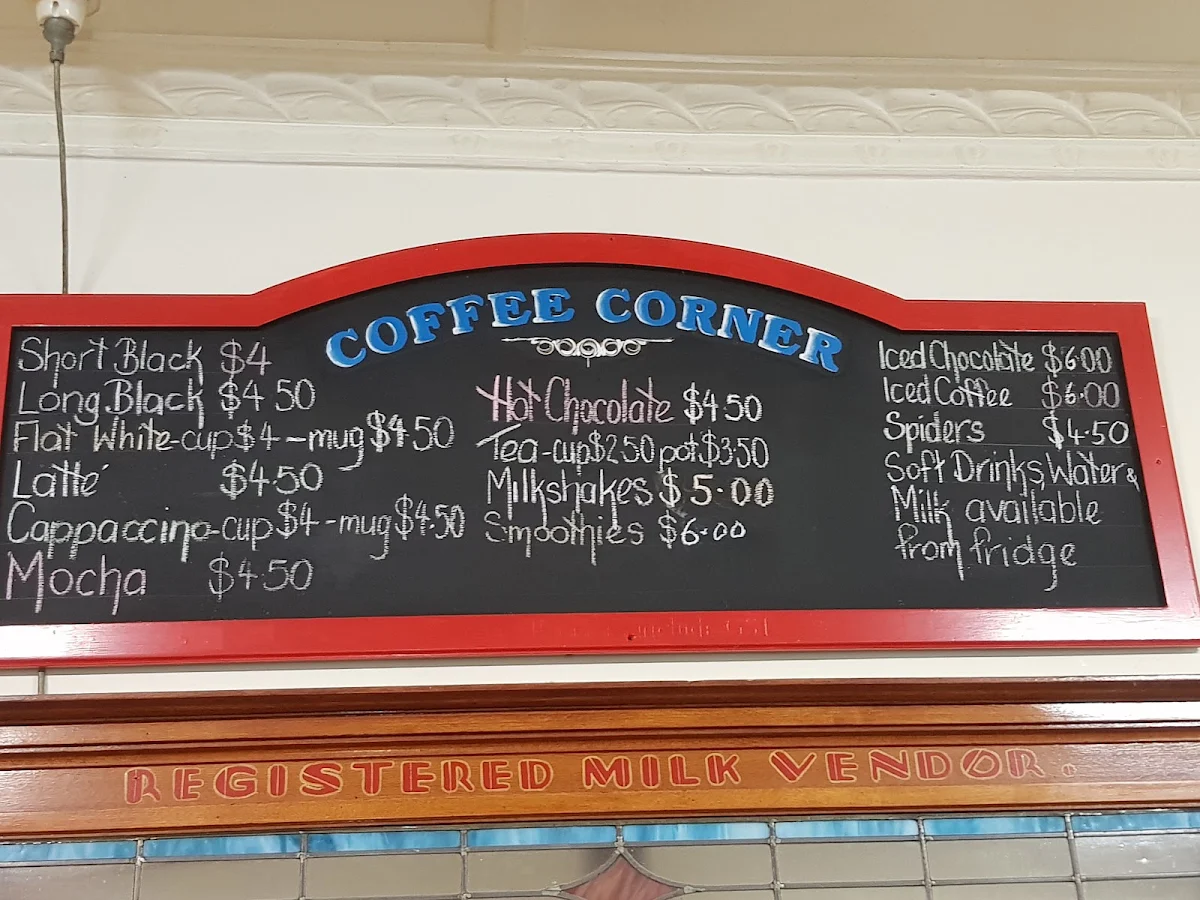 COFFEE CORNER
Short Black $4
Long Black $4.50
Flat White-cup $4-mug $4.50
Latté $4.50
Cappaccino-cup $4-mug $4.50
Mocha $4.50
Hot Chocolate $4.50
Tea-cup $2.50 pot $3.50
Milkshakes $5.00
Smoothies $6.00
Iced Chocolate $6.00
Iced Coffee $6.00
Spiders $4.50
Soft Drinks, Water &
Milk available
from fridge
include GST
REGISTERED MILK VENDOR.